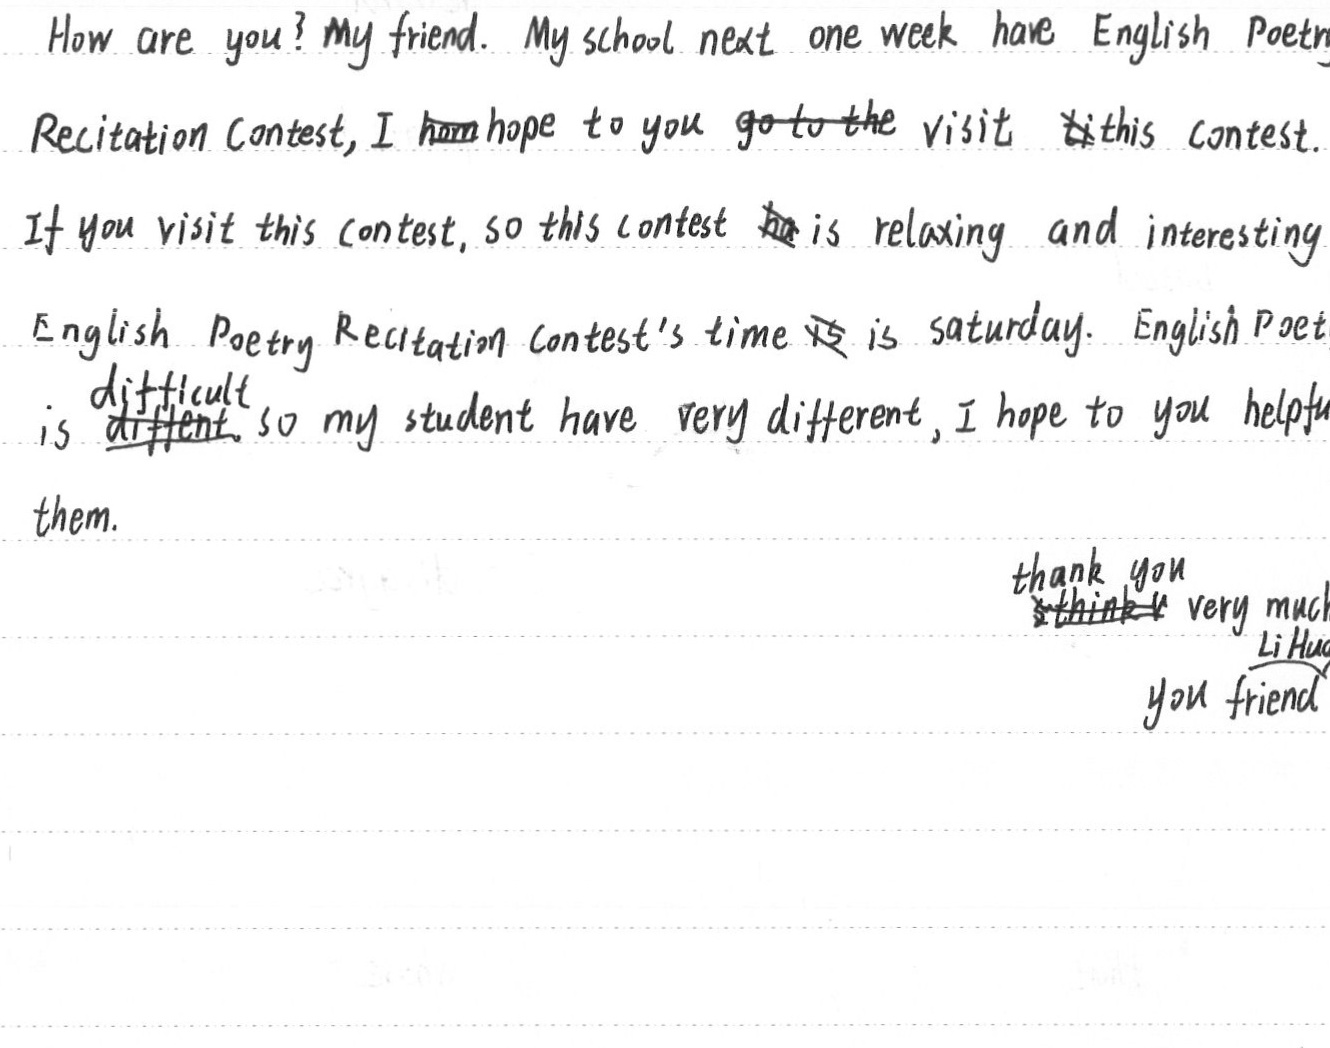 How are you? My friend. My school next one week have English Poetry
Recitation Contest, I hope to you visit this contest.
If you visit this contest, so this contest is relaxing and interesting
English Poetry Recitation Contest's time is saturday. English Poet
difficult
is so my student have very different, I hope to you helpfu
them.
thank you
very much
Li Hua
you friend